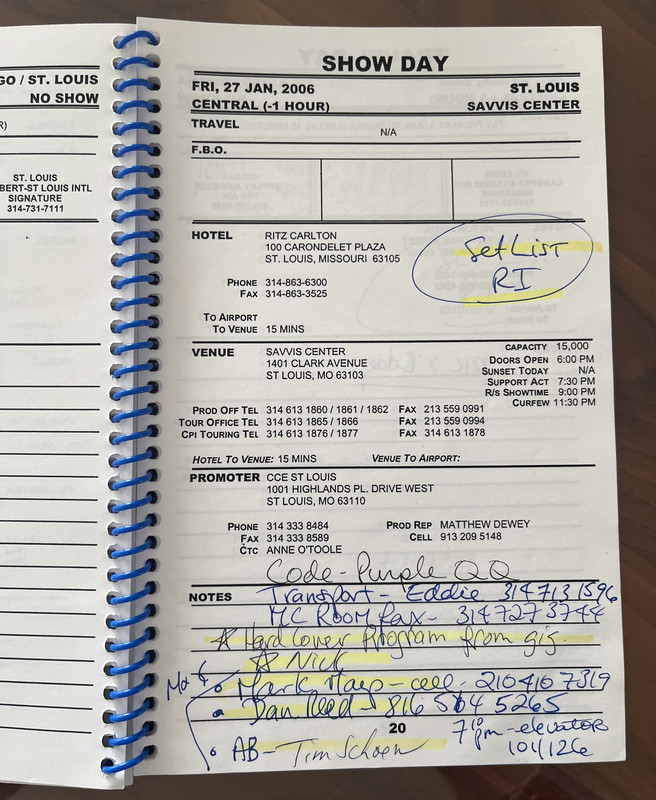 GO / ST. LOUIS
NO SHOW
R)
ST. LOUIS
BERT-ST LOUIS INTL
SIGNATURE
314-731-7111
SHOW DAY
FRI, 27 JAN, 2006 ST. LOUIS
CENTRAL (-1 HOUR) SAVVIS CENTER
TRAVEL N/A
F.B.O.
HOTEL RITZ CARLTON
100 CARONDELET PLAZA
ST. LOUIS, MISSOURI 63105
Set List
RI
PHONE 314-863-6300
FAX 314-863-3525
TO AIRPORT
TO VENUE 15 MINS
VENUE SAVVIS CENTER
1401 CLARK AVENUE
ST LOUIS, MO 63103
CAPACITY 15,000
DOORS OPEN 6:00 PM
SUNSET TODAY N/A
SUPPORT ACT 7:30 PM
R/S SHOWTIME 9:00 PM
CURFEW 11:30 PM
PROD OFF TEL 314 613 1860 / 1861 / 1862 FAX 213 559 0991
TOUR OFFICE TEL 314 613 1865 / 1866 FAX 213 559 0994
CPI TOURING TEL 314 613 1876 / 1877 FAX 314 613 1878
HOTEL TO VENUE: 15 MINS VENUE TO AIRPORT:
PROMOTER CCE ST LOUIS
1001 HIGHLANDS PL. DRIVE WEST
ST LOUIS, MO 63110
PHONE 314 333 8484 PROD REP MATTHEW DEWEY
FAX 314 333 8589 CELL 913 209 5148
CTC ANNE O'TOOLE
Code - Purple QQ
NOTES Transport - Eddie 314 713 1596
MC Room fax - 314 727 3744
Hard Cover Program from gig.
Nick
Mark - cell - 210 410 7319
Dan - 816 564 5265
20
7 pm - elevators
AB - Tim Schoen